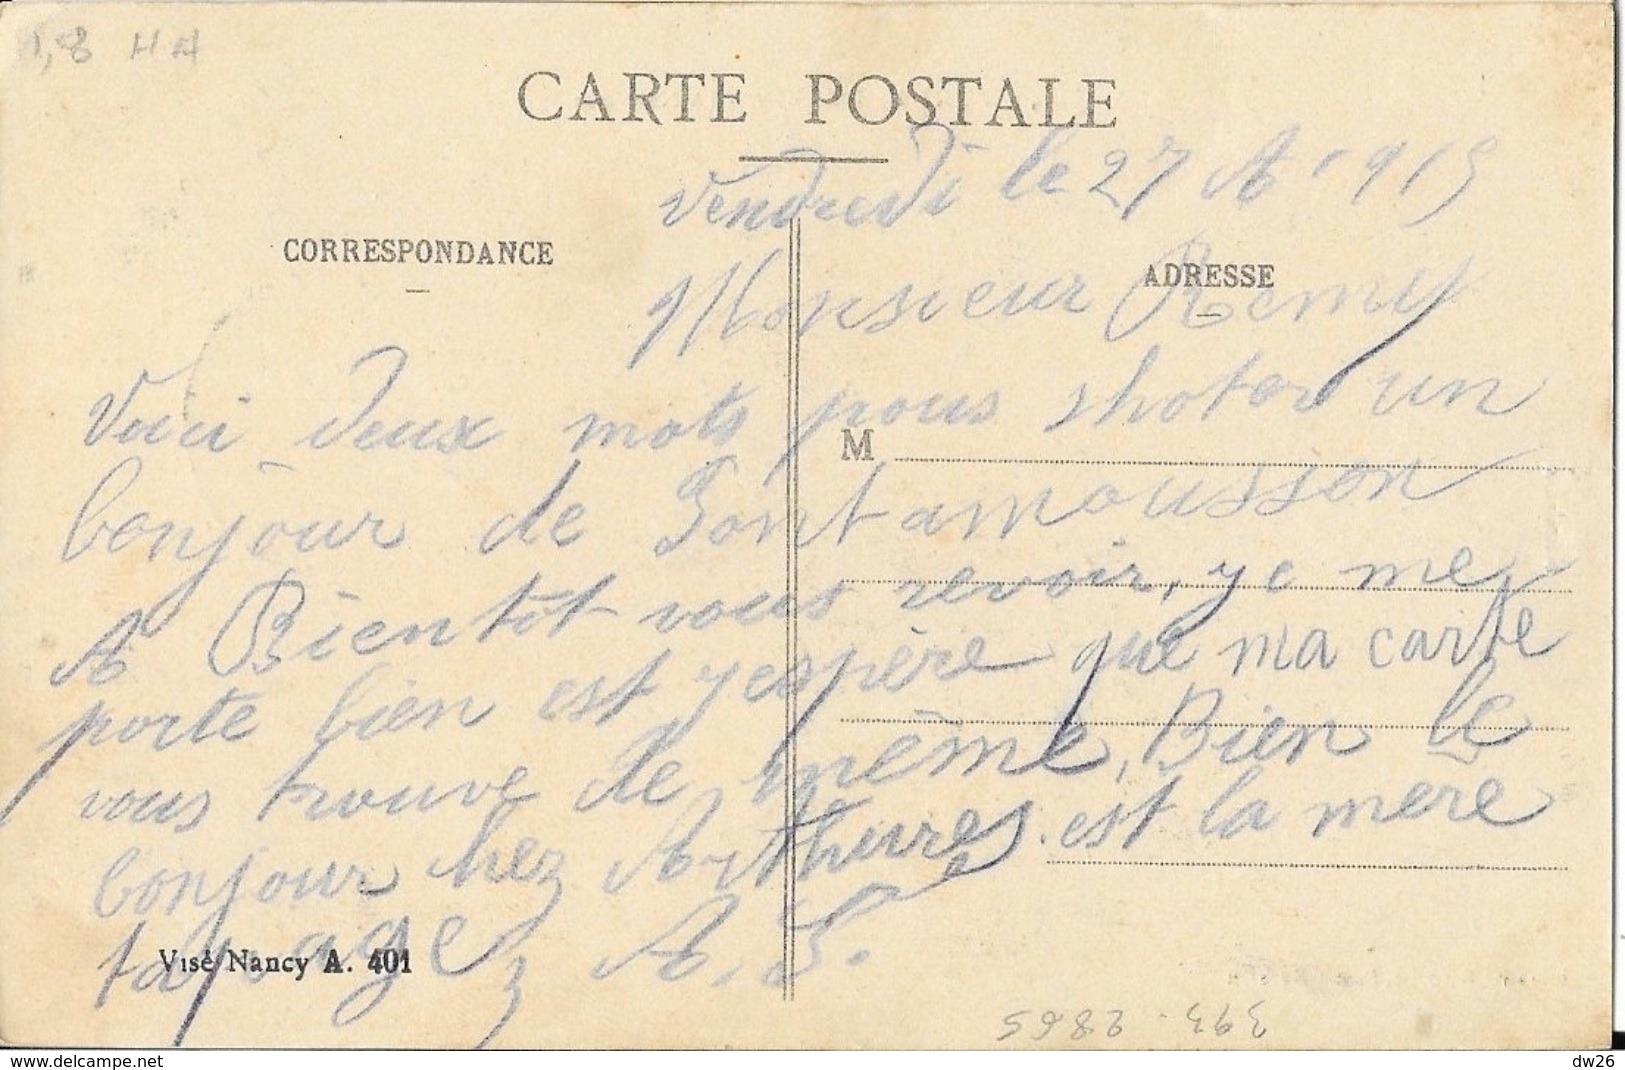 1,8 HA
CARTE POSTALE
Vendredi le 27 A 1915
CORRESPONDANCE
ADRESSE
Monsieur Remy
Voici deux mots pous shoter un
M
bonjour de Pontamousson
A Bientôt vous revoir, ye me
porte bien est yespère que ma carte
vous trouve de même, Bien le
bonjour hez Arthures est la mere
tapagez A. S.
Visé Nancy A. 401
393 - 2865
dw26